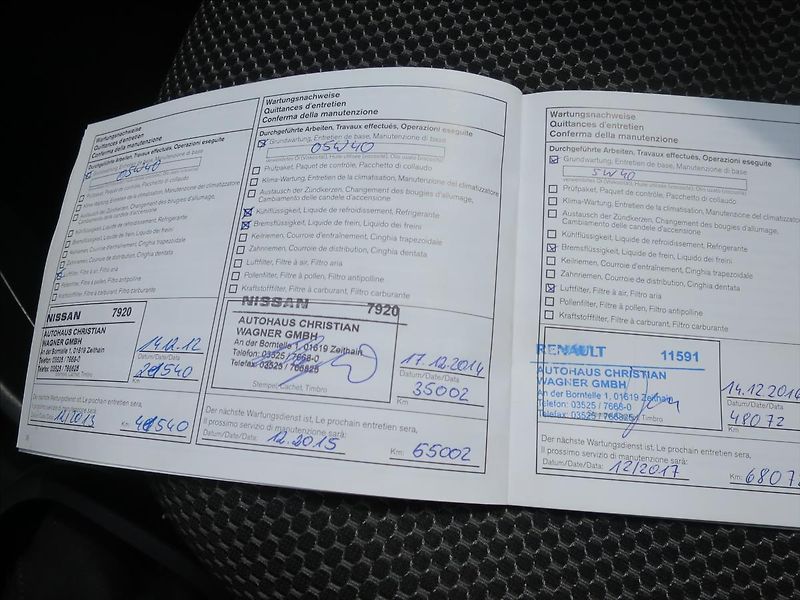 Wartungsnachweise
Quittances d'entretien
Conferma della manutenzione
Durchgeführte Arbeiten, Travaux effectués, Operazioni eseguite
Grundwartung, Entretien de base, Manutenzione di base
05W40
Prüfpaket, Paquet de contrôle, Pacchetto di collaudo
Klima-Wartung, Entretien de la climatisation, Manutenzione del climatizzatore
Austausch der Zündkerzen, Changement des bougies d'allumage,
Cambiamento delle candele d'accensione
Kühlflüssigkeit, Liquide de refroidissement, Refrigerante
Bremsflüssigkeit, Liquide de frein, Liquido dei freini
Keilriemen, Courroie d'entraînement, Cinghia trapezoidale
Zahnriemen, Courroie de distribution, Cinghia dentata
Luftfilter, Filtre à air, Filtro aria
Pollenfilter, Filtre à pollen, Filtro antipolline
Kraftstofffilter, Filtre à carburant, Filtro carburante
NISSAN 7920
AUTOHAUS CHRISTIAN
WAGNER GMBH
An der Borntelle 1, 01619 Zeithain
Telefon: 03525 / 7668-0
Telefax: 03525 / 766825
Stempel, Cachet, Timbro
14.12.12
Datum/Date/Data
Km
Der nächste Wartungsdienst ist, Le prochain entretien sera,
Il prossimo servizio di manutenzione sarà:
Datum/Date/Data: 12/2013 Km:
Wartungsnachweise
Quittances d'entretien
Conferma della manutenzione
Durchgeführte Arbeiten, Travaux effectués, Operazioni eseguite
Grundwartung, Entretien de base, Manutenzione di base
05W40
Prüfpaket, Paquet de contrôle, Pacchetto di collaudo
Klima-Wartung, Entretien de la climatisation, Manutenzione del climatizzatore
Austausch der Zündkerzen, Changement des bougies d'allumage,
Cambiamento delle candele d'accensione
Kühlflüssigkeit, Liquide de refroidissement, Refrigerante
Bremsflüssigkeit, Liquide de frein, Liquido dei freini
Keilriemen, Courroie d'entraînement, Cinghia trapezoidale
Zahnriemen, Courroie de distribution, Cinghia dentata
Luftfilter, Filtre à air, Filtro aria
Pollenfilter, Filtre à pollen, Filtro antipolline
Kraftstofffilter, Filtre à carburant, Filtro carburante
NISSAN 7920
AUTOHAUS CHRISTIAN
WAGNER GMBH
An der Borntelle 1, 01619 Zeithain
Telefon: 03525 / 7668-0
Telefax: 03525 / 766825
Stempel, Cachet, Timbro
17.12.2014
Datum/Date/Data
35002
Km
Der nächste Wartungsdienst ist, Le prochain entretien sera,
Il prossimo servizio di manutenzione sarà:
Datum/Date/Data: 12.2015 Km: 65002
Wartungsnachweise
Quittances d'entretien
Conferma della manutenzione
Durchgeführte Arbeiten, Travaux effectués, Operazioni eseguite
Grundwartung, Entretien de base, Manutenzione di base
5W40
Prüfpaket, Paquet de contrôle, Pacchetto di collaudo
Klima-Wartung, Entretien de la climatisation, Manutenzione del climatizzatore
Austausch der Zündkerzen, Changement des bougies d'allumage,
Cambiamento delle candele d'accensione
Kühlflüssigkeit, Liquide de refroidissement, Refrigerante
Bremsflüssigkeit, Liquide de frein, Liquido dei freini
Keilriemen, Courroie d'entraînement, Cinghia trapezoidale
Zahnriemen, Courroie de distribution, Cinghia dentata
Luftfilter, Filtre à air, Filtro aria
Pollenfilter, Filtre à pollen, Filtro antipolline
Kraftstofffilter, Filtre à carburant, Filtro carburante
RENAULT 11591
AUTOHAUS CHRISTIAN
WAGNER GMBH
An der Borntelle 1, 01619 Zeithain
Telefon: 03525 / 7668-0
Telefax: 03525 / 766825
14.12.2016
Datum/Date/Data
48072
Km
Der nächste Wartungsdienst ist, Le prochain entretien sera,
Il prossimo servizio di manutenzione sarà:
Datum/Date/Data: 12/2017 Km: 6807